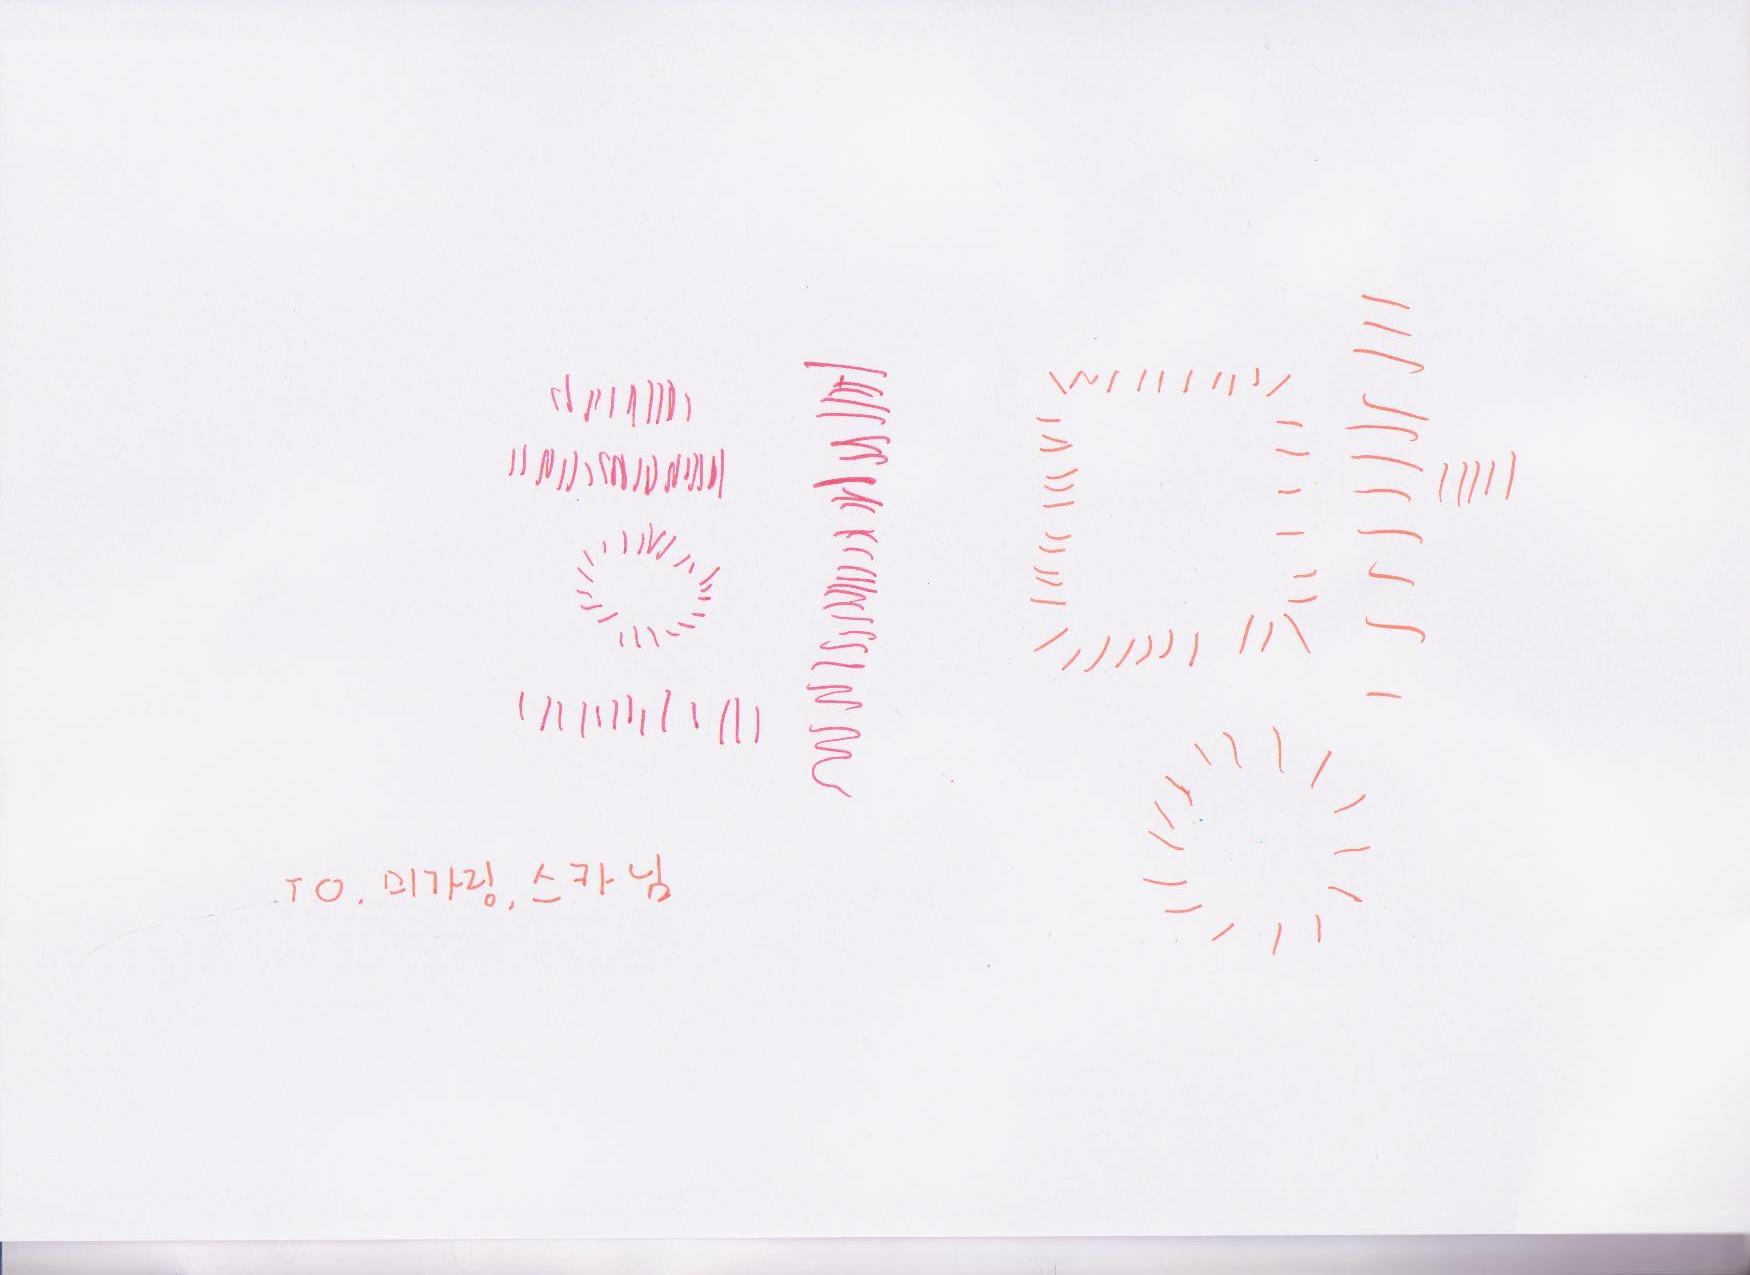 희망
TO. 미가링, 스카님